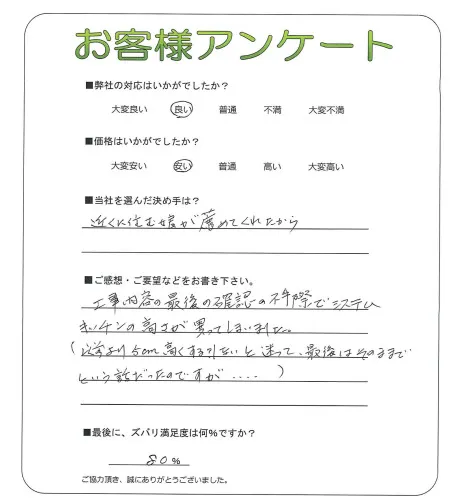 お客様アンケート
■弊社の対応はいかがでしたか？
大変良い 良い 普通 不満 大変不満
■価格はいかがでしたか？
大変安い 安い 普通 高い 大変高い
■当社を選んだ決め手は？
近くに住む娘が薦めてくれたから
■ご感想・ご要望などをお書き下さい。
工事内容の最後の確認の不手際でシステム
キッチンの高さが異ってしまいました。
(従来より5cm高くする引たいと迷って、最後はそのままで
という話だったのですが.....)
■最後に、ズバリ満足度は何％ですか？
80%
ご協力頂き、誠にありがとうございました。